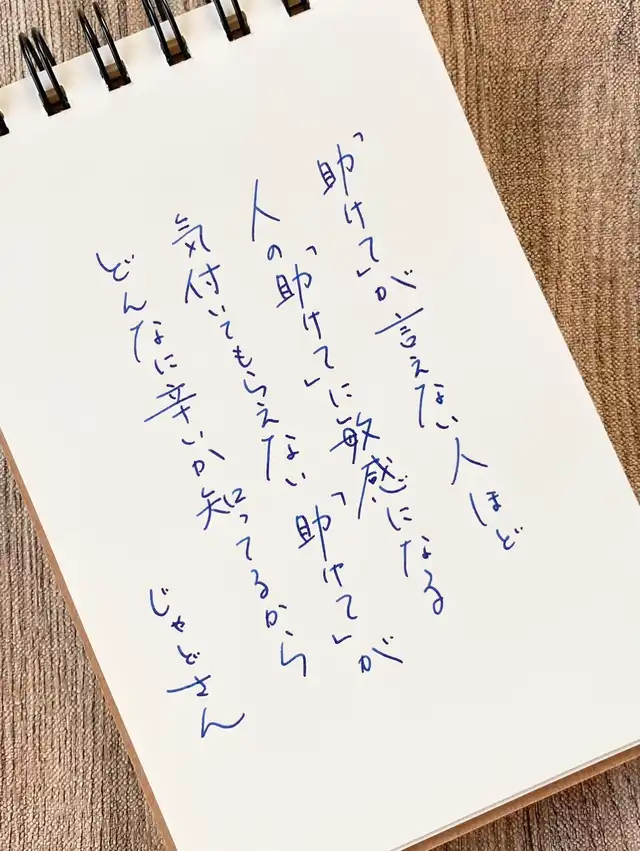 「助けて」が言えない人ほど
人の「助けて」に敏感になる
気付いてもらえない「助けて」が
どんなに辛いか知ってるから
じゃどさん